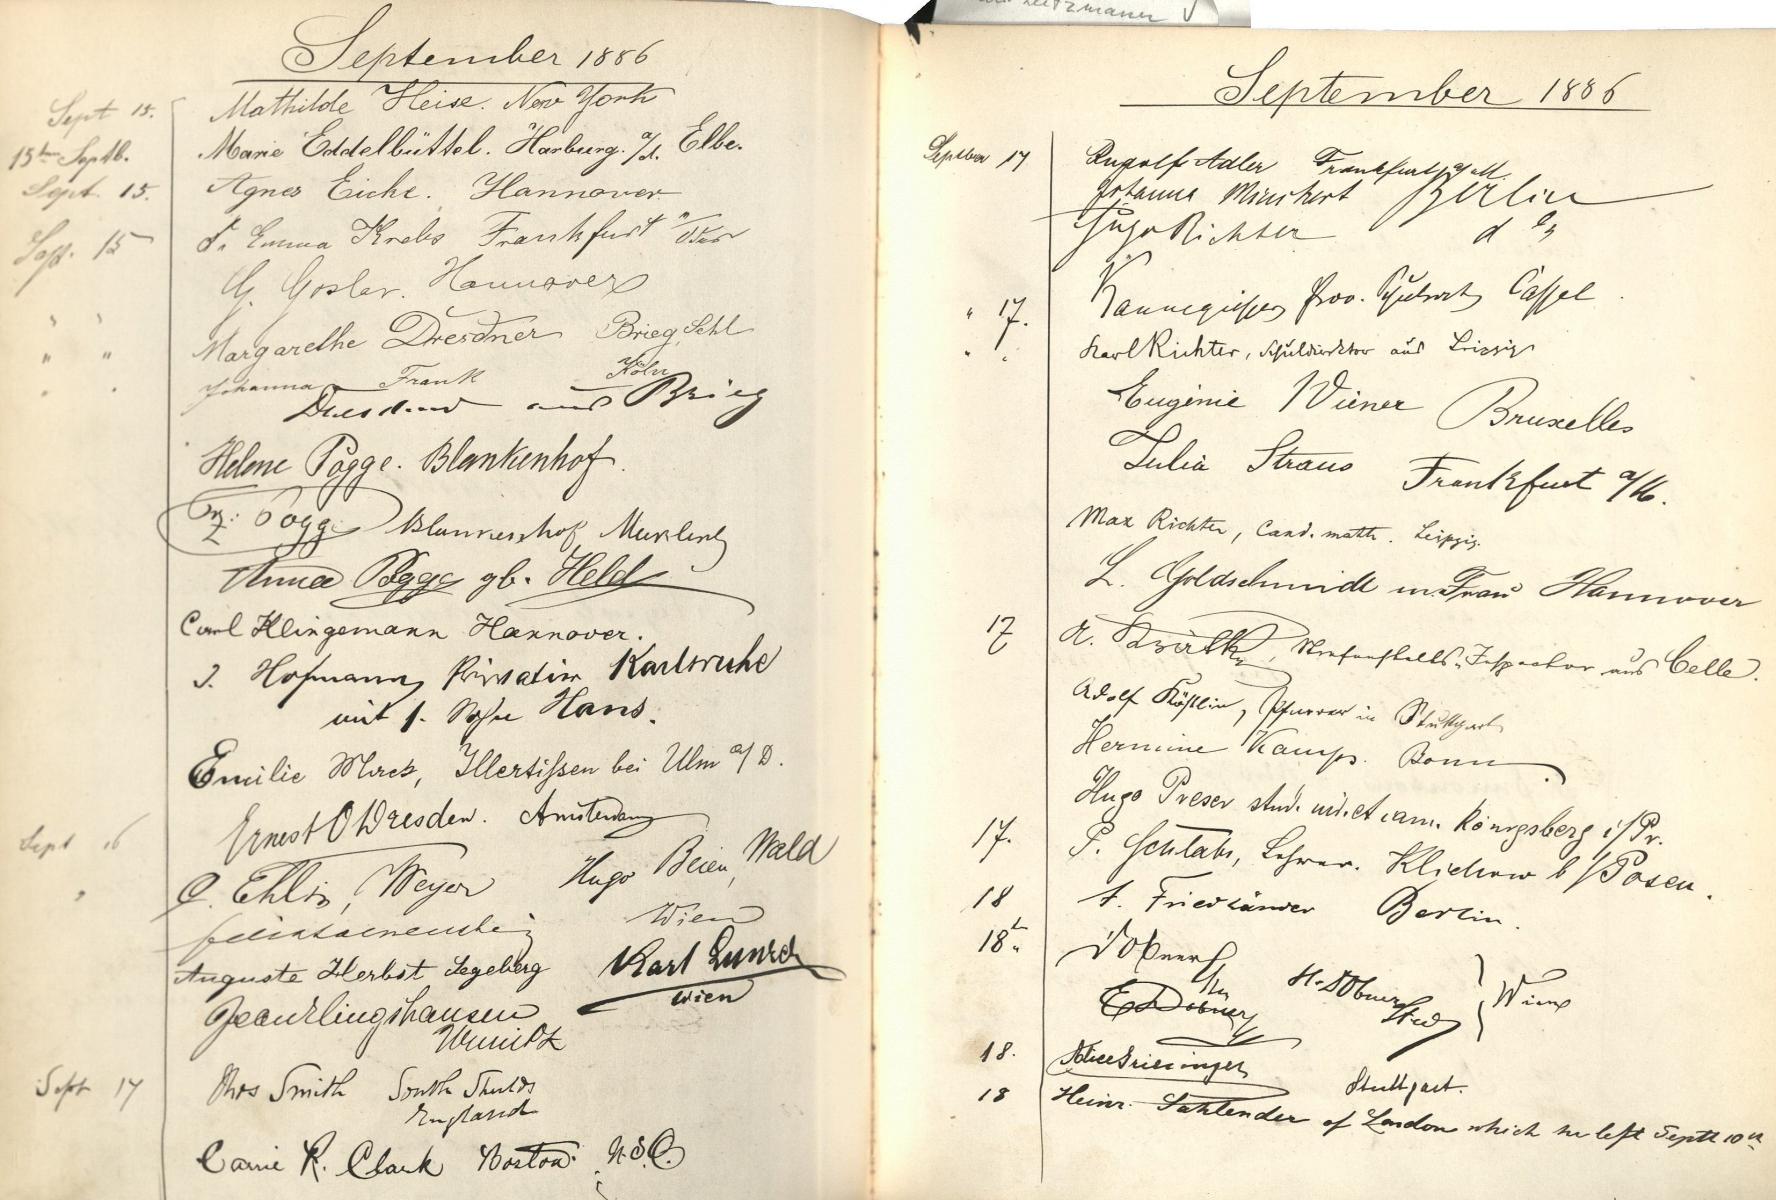 Leitzmann
September 1886
Sept 15. Mathilde Heise. New York
15ten Septb. Marie Eddelbüttel. Harburg. a/d. Elbe.
Sept. 15. Agnes Eicke. Hannover
Sept. 15 Emma Krebs Frankfurt a/Oder
G. Gosler. Hannover
Margarethe Dresdner Brieg Schl
" " Johanna Frank Köln
Dresdner aus Brieg
Helene Pogge. Blankenhof.
Fr: Pogge Blankenhof
Anna Pogge gb. Held
Carl Klingemann Hannover.
J. Hofmann, Privatier Karlsruhe
mit s. Sohn Hans.
Emilie Merck, Illertissen bei Ulm a/D.
Ernest O Dresden. Amsterdam
Sept 16 Weyer Hugo Beien, Wald
Wien
Auguste Herbst Segeberg Karl
Wien
Sept 17 Thos Smith South Shields
England
Carrie R. Clark Boston U.S.A.
September 1886
September 17 Rudolf Adler Frankfurt a/M.
Johanna Berlin
Hugo Richter do
" 17. Kannegiesser Prov. Schulrat, Cassel
" " Karl Richter, Schuldirektor aus Leipzig
Eugénie Wiener Bruxelles
Julia Straus Frankfurt a/M.
Max Richter, Cand. math. Leipzig.
L. Goldschmidt m. Frau Hannover
17 A. Strafanstalts-Inspector aus Celle.
Adolf Köstlin, Pfarrer in Stuttgart
Hermine Kamps. Bonn
Hugo Preser stud. Königsberg i/Pr.
17. P. Lehrer. b/Posen.
18 A. Friedländer Berlin.
18. Dobner
E Dobner H. Dobner Wien
18. Alice Griesinger Stuttgart.
18 Heinr. Sahlender of London which he left Septb 10th